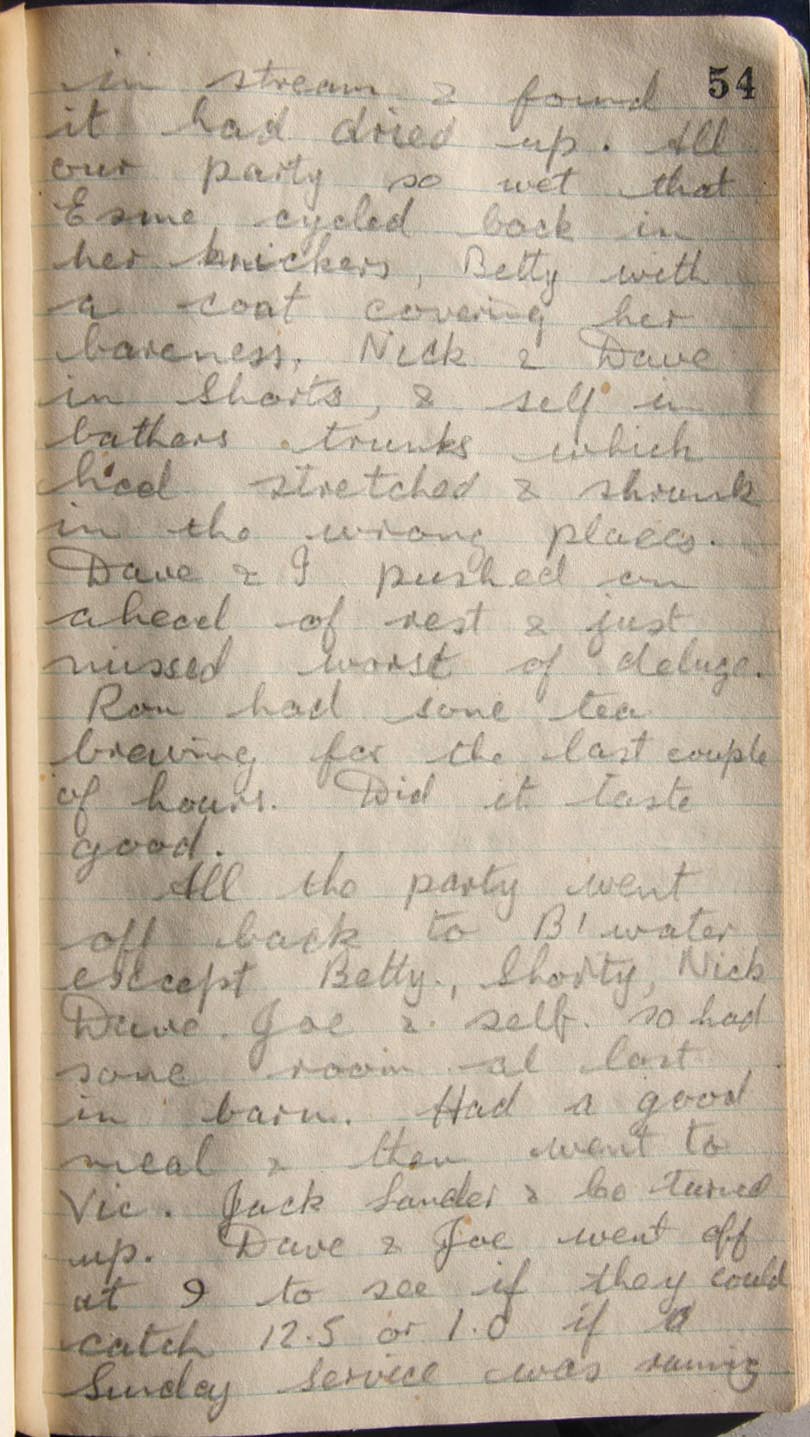 54
in stream & found
it had dried up. All
our party so wet that
Esme cycled back in
her knickers, Betty with
a coat covering her
bareness, Nick & Dave
in shorts, & self in
bathers trunks which
had stretched & shrunk
in the wrong places.
Dave & I pushed on
ahead of rest & just
missed worst of deluge.
Ron had some tea
brewing for the last couple
of hours. Did it taste
good.
All the party went
off back to B'water
except Betty, Shorty, Nick
Dave. Joe & self. so had
some room at last
in barn. Had a good
meal & then went to
Vic. Jack Sander & Co turned
up. Dave & Joe went off
at 9 to see if they could
catch 12.5 or 1.0 if a
Sunday service was running